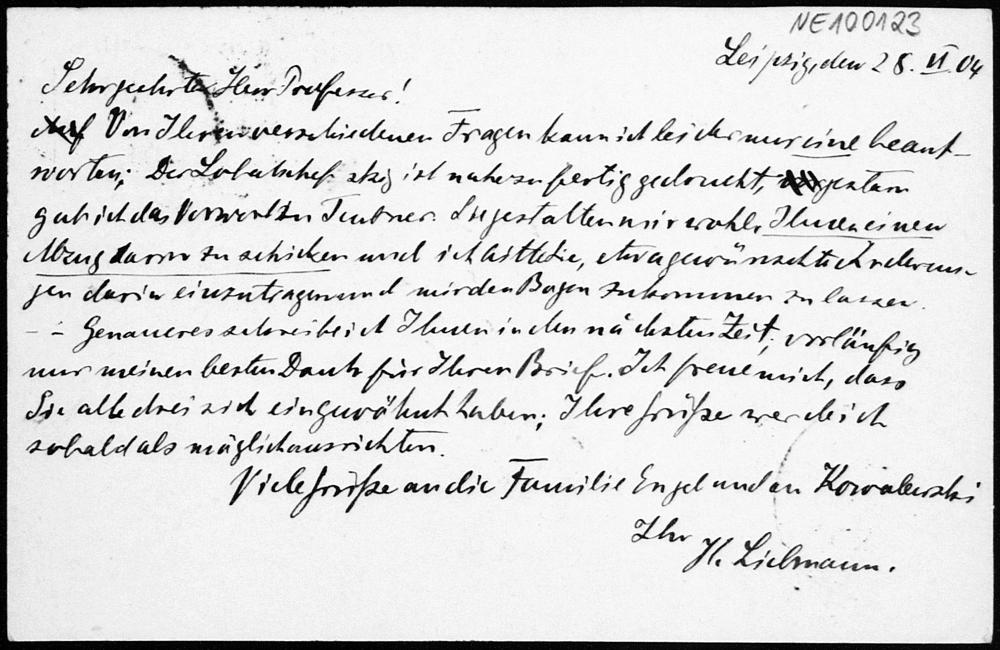 NE100123
Leipzig, den 28. VI 04
Sehr geehrter Herr Professor!
Von Ihren verschiedenen Fragen kann ich leider nur eine beant-
worten; Der Lobatschefskij ist nahezu fertig gedruckt, gestern
gab ich das Vorwort zu Teubner. Sie gestatten mir wohl, Ihnen einen
Abzug davon zu schicken und ich bitte Sie, etwa gewünschte Änderun-
gen darin einzutragen und mir den Bogen zukommen zu lassen.
– – Genaueres schreibe ich Ihnen in der nächsten Zeit, vorläufig
nur meinen besten Dank für Ihren Brief. Ich freue mich, dass
Sie alle drei sich eingewöhnt haben; Ihre Grüße werde ich
sobald als möglich ausrichten.
Viele Grüße an die Familie Engel und an Kowalewski
Ihr
H. Liebmann.